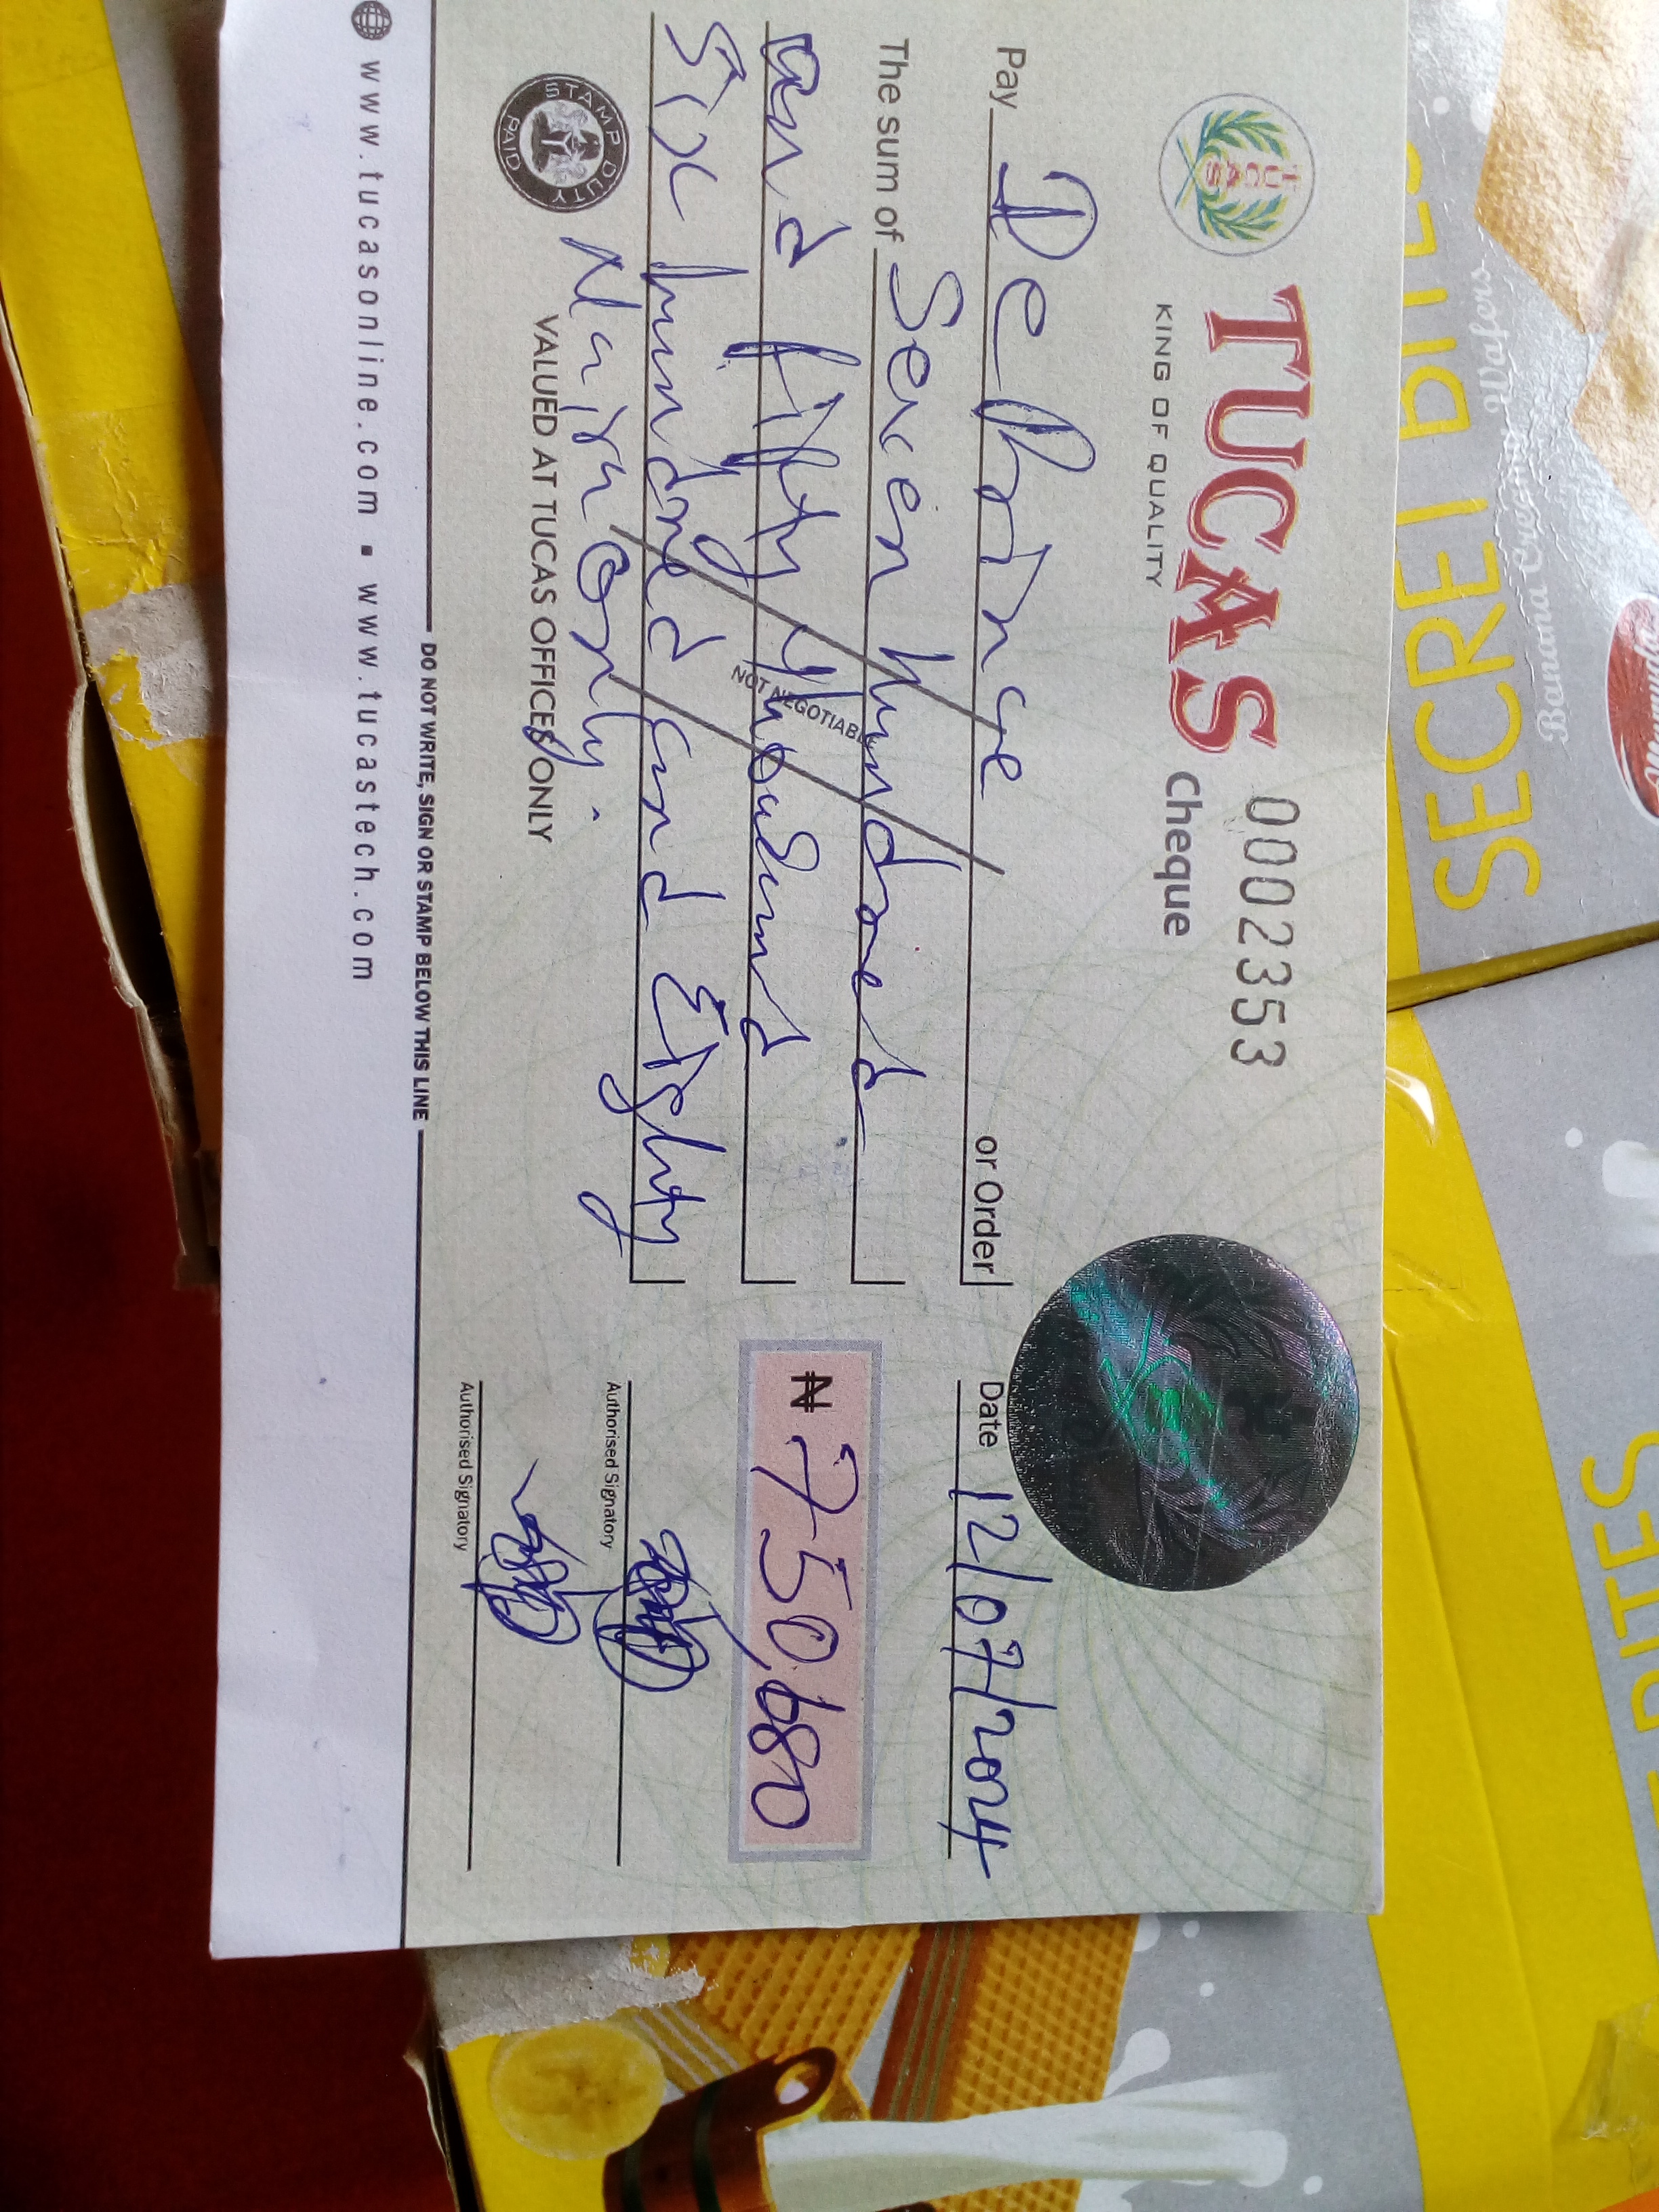 TUCAS 0002353
KING OF QUALITY Cheque
Pay De Prince or Order
Date 12/07/2024
The sum of Seven hundred
and fifty thousand
₦ 750,680
Six hundred and Eighty
Naira only.
NOT NEGOTIABLE
VALUED AT TUCAS OFFICES ONLY
STAMP DUTY PAID
Authorised Signatory
Authorised Signatory
DO NOT WRITE, SIGN OR STAMP BELOW THIS LINE
www.tucasonline.com ▪ www.tucastech.com
SECRET BITES
Banana Coconut
wafers